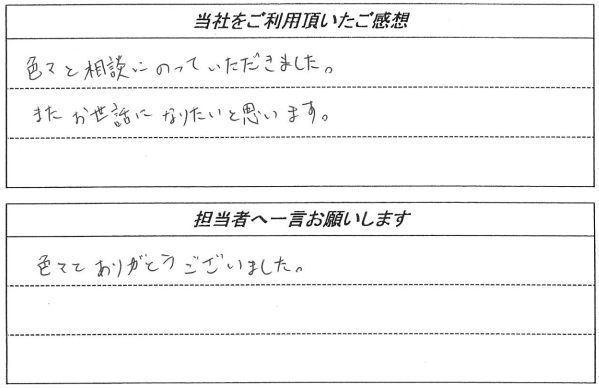 当社をご利用頂いたご感想
色々と相談にのっていただきました。
またお世話になりたいと思います。
担当者へ一言お願いします
色々とありがとうございました。